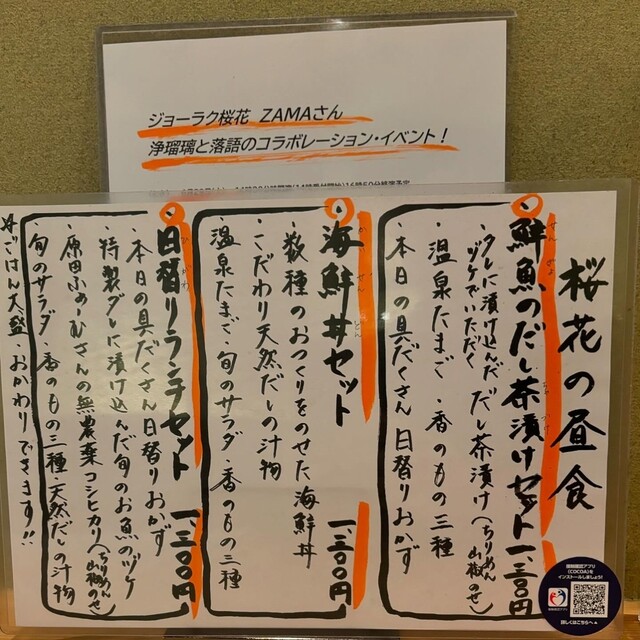 ジョーラク桜花 ZAMAさん
浄瑠璃と落語のコラボレーション・イベント！
桜花の昼食
・鮮魚のだし茶漬けセット 一、三〇〇円
せんぎょ
ちゃづ
タレに漬け込んだ だし茶漬け(ちりめん山椒のせ)
ヅケでいただく
・温泉たまご ・香のもの三種
・本日の具だくさん日替りおかず
・海鮮丼セット 一、三〇〇円
かいせんどん
・数種のおつくりをのせた海鮮丼
・こだわり天然だしの汁物
・温泉たまご・旬のサラダ・香のもの三種
・日替りランチセット 一、三〇〇円
ひがわ
・本日の具だくさん日替りおかず
・特製ダレに漬け込んだ旬のお魚のヅケ
・原田ふぁーむさんの無農薬コシヒカリ(ちりめん山椒のせ)
・旬のサラダ・香のもの三種・天然だしの汁物
※ごはん大盛、おかわりできます!!
接触確認アプリ
(COCOA)を
インストールしましょう!
詳しくはこちらへ